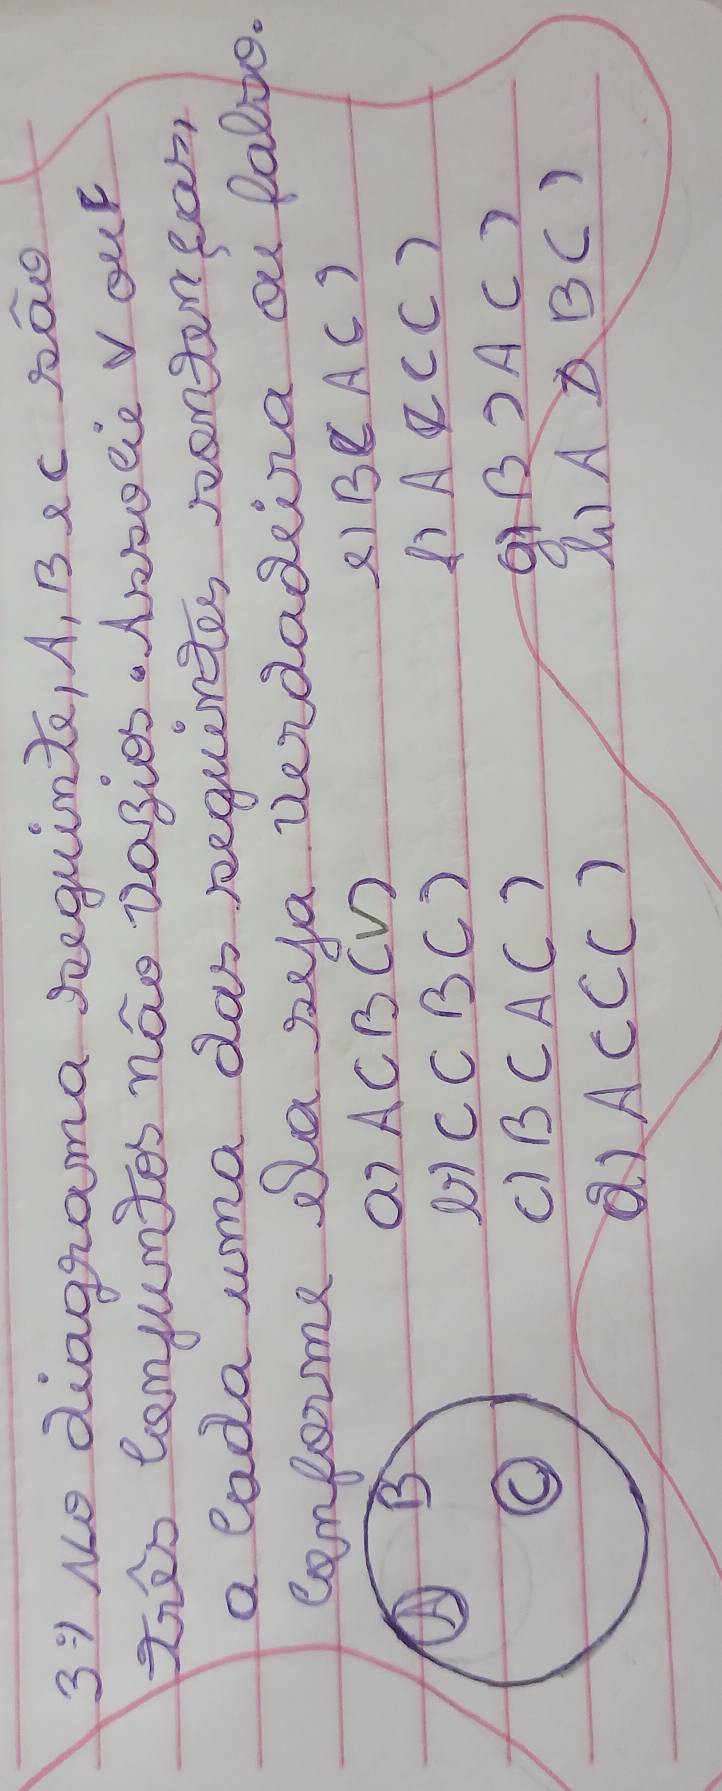 3º) No diagrama seguinte, A, B e C são
três conjuntos não vazios. Associe V ou F
a cada uma das seguintes sentenças,
conforme ela seja verdadeira ou falso.
A B C
a) A ⊂ B (V) e) B ⊄ A ( )
b) C ⊂ B ( ) f) A ⊄ C ( )
c) B ⊂ A ( ) g) B ⊃ A ( )
d) A ⊂ C ( ) h) A ⊅ B ( )